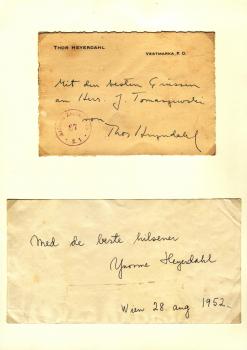 THOR HEYERDAHL
VESTMARKA, P. O.
Mit den besten Grüssen
an Herr. J. Tomaszewski
von
Thor Heyerdahl
Med de beste hilsener
Yvonne Heyerdahl
Wien 28. aug 1952.